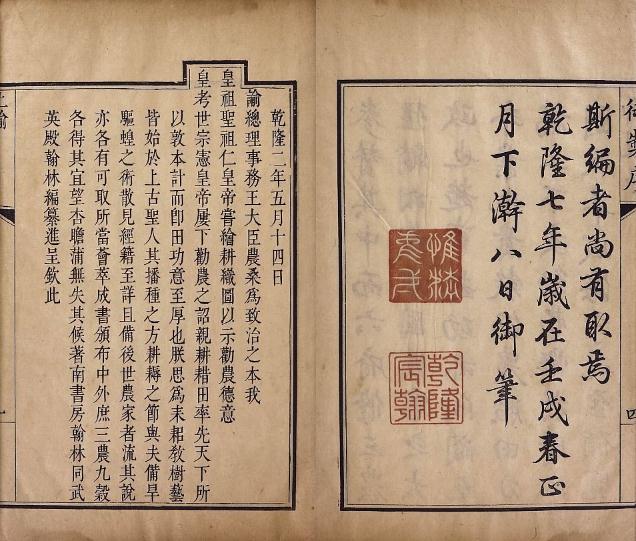 斯編者尚有取焉
乾隆七年歲在壬戌春正
月下澣八日御筆
惟精
乾隆
宸翰
乾隆二年五月十四日
諭總理事務王大臣農桑為致治之本我
皇祖聖祖仁皇帝嘗繪耕織圖以示勸農德意
皇考世宗憲皇帝屢下勸農之詔親耕耤田率先天下所
以敦本計而即田功意至厚也朕思為耒耜敎樹藝
皆始於上古聖人其播種之方耕耨之節與夫備旱
驅蝗之術散見經籍至詳且備後世農家者流其說
亦各有可取所當薈萃成書頒布中外庶三農九穀
各得其宜望杏瞻蒲無失其候著南書房翰林同武
英殿翰林編纂進呈欽此
上諭